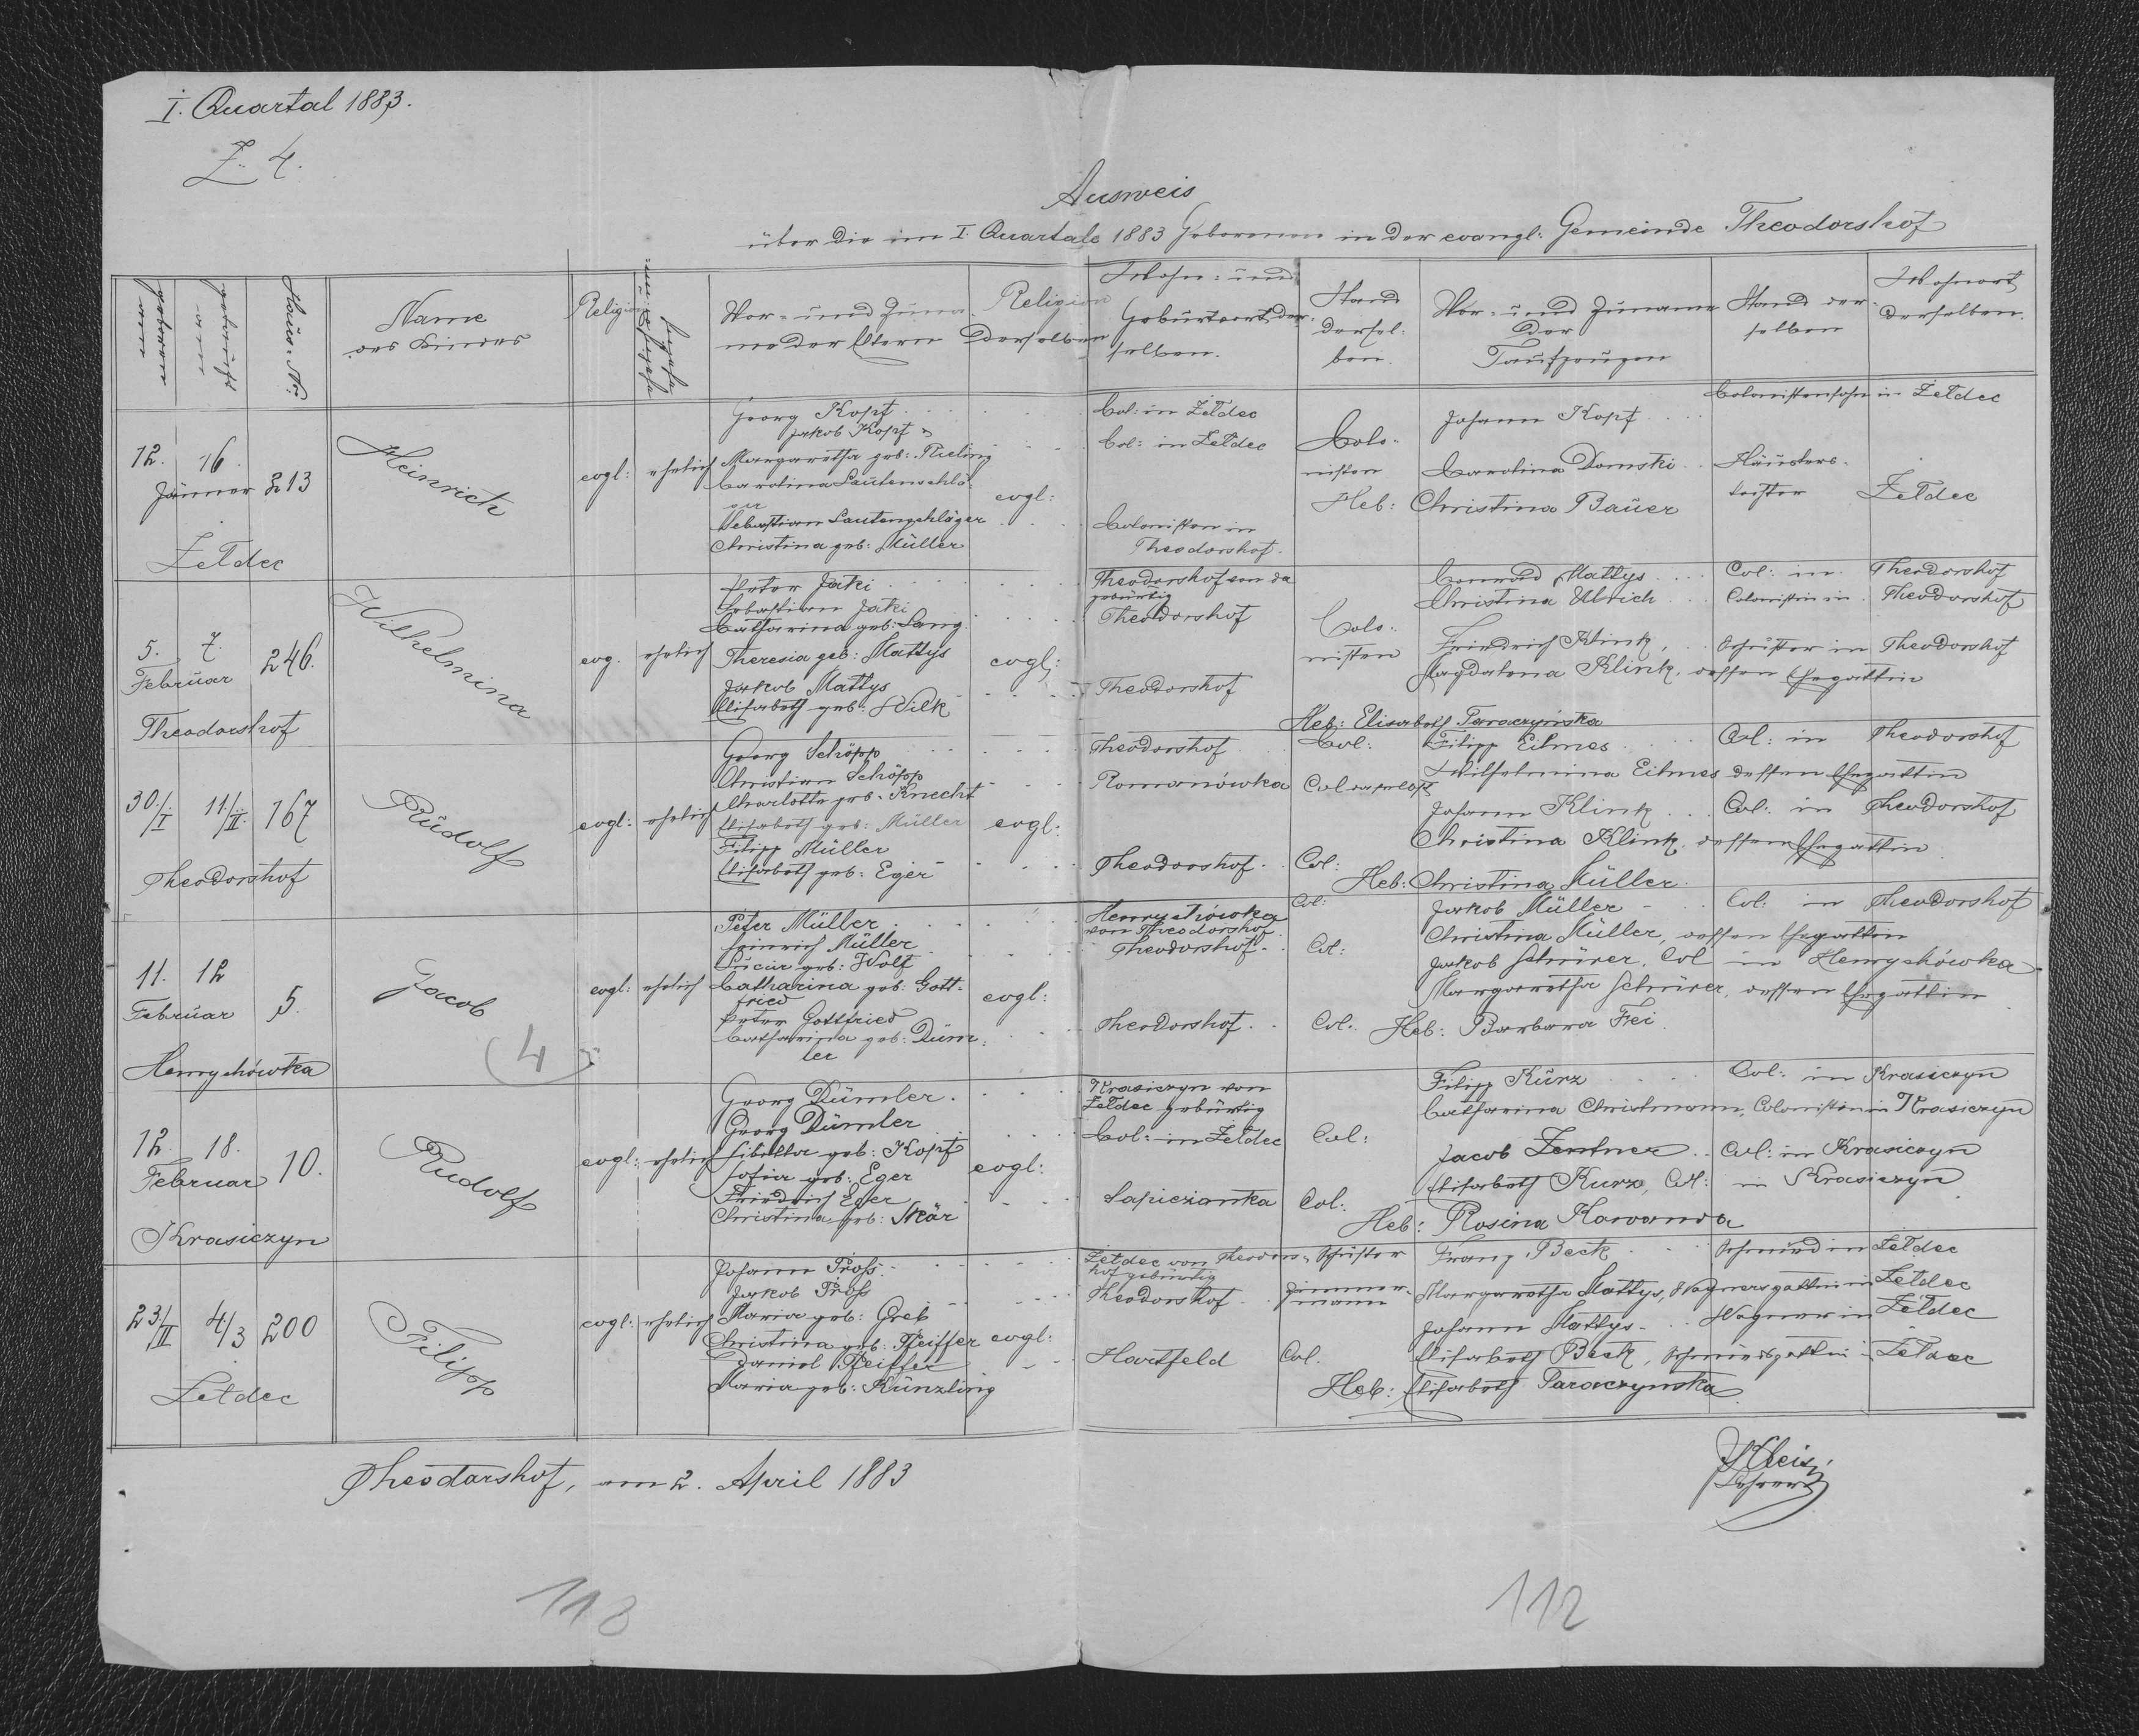 I. Quartal 1883.
Z. 4.
Ausweis
über die im I. Quartale 1883 Geborenen in der evangl: Gemeinde Theodorshof
geboren am
getauft am
Haus-Nr:
Name des Kindes
Religion
ehelich
unehelich
Vor- und Zuna-
me der Eltern
Religion
derselben
Wohn- und
Geburtsort der-
selben.
Stand
dersel-
ben.
Vor- und Zuname
der
Taufzeugen
Stand der-
selben
Wohnort
derselben.
12. 16. Jänner 213
Zeldec
Heinrich
evgl: ehelich
Georg Kopf
Jakob Kopf
Margaretha geb: Rieling
Carolina Lautenschlä-
ger
Sebastian Lautenschläger
Christina geb: Müller
evgl:
Col: in Zeldec
Col: in Zeldec
Colonisten in
Theodorshof.
Colo-
nisten
Johann Kopf Colonistensohn in Zeldec
Carolina Domski Häuslers-
tochter Zeldec
Heb: Christina Bauer
5. 7. Februar 246.
Theodorshof
Wilhelmina
evg. ehelich
Peter Jaki
Sebastian Jaki
Catharina geb: Lang
Theresia geb: Mattys
Jakob Mattys
Elisabeth geb: Wilk
evgl:
Theodorshof von da
gebürtig
Theodorshof
Theodorshof
Colo-
nisten
Conrad Mattys Col: in Theodorshof
Christina Ulrich Colonistin in Theodorshof
Friedrich Klink, Schuster in Theodorshof
Magdalena Klink, dessen Ehegattin
Heb: Elisabeth Paraczyńska
30./I 11./II. 167
Theodorshof
Rudolf
evgl: ehelich
Georg Schöpp
Christian Schöpp
Charlotte geb. Knecht
Elisabeth geb: Müller
Filipp Müller
Elisabeth geb: Eger
evgl:
Theodorshof Col:
Romanówka
Theodorshof Col:
Filipp Eilmes Col: in Theodorshof
Wilhelmina Eilmes dessen Ehegattin
Johann Klink Col: in Theodorshof
Christina Klink, dessen Ehegattin
Heb: Christina Müller
11. 12 Februar 5.
Henrychówka
Jacob
(4)
evgl: ehelich
Peter Müller
Heinrich Müller
Lucia geb: Wolf
Catharina geb: Gott-
fried
Peter Gottfried
Catharina geb: Düm-
ler
evgl:
Henrychówka
von Theodorshof Col:
Theodorshof Col:
Theodorshof Col:
Jakob Müller Col: in Theodorshof
Christina Müller, dessen Ehegattin
Jakob Schürer, Col in Henrychówka
Margaretha Schürer, dessen Ehegattin
Heb: Barbara Frei
12. 18. Februar 10.
Krasiczyn
Rudolf
evgl: ehelich
Georg Dümler
Georg Dümler
Sibilla geb: Kopf
Sofia geb: Eger
Friedrich Eger
Christina geb: Mär
evgl:
Krasiczyn von
Zeldec gebürtig
Col: in Zeldec Col:
Lapiezanka Col:
Filipp Kurz Col: in Krasiczyn
Catharina Christmann, Colonistin in Krasiczyn
Jacob Zentner Col: in Krasiczyn
Elisabeth Kurz, Col: in Krasiczyn
Heb: Rosina Kowanda
23/II 4/3 200
Zeldec
Filipp
evgl: ehelich
Johann Pross
Jakob Pross
Maria geb: Greb
Christina geb: Pfeiffer
Daniel Pfeiffer
Maria geb: Künzling
evgl:
Zeldec von Theodors- Schuster
hof gebürtig
Theodorshof Zimmer-
mann
Hartfeld Col.
Franz Beck Schmied in Zeldec
Margaretha Mattys, Wagnersgattin in Zeldec
Johann Mattys Wagner in Zeldec
Elisabeth Beck, Schmiedsgattin in Zeldec
Heb: Elisabeth Paraczynska
Theodorshof, am 2. April 1883
113
112